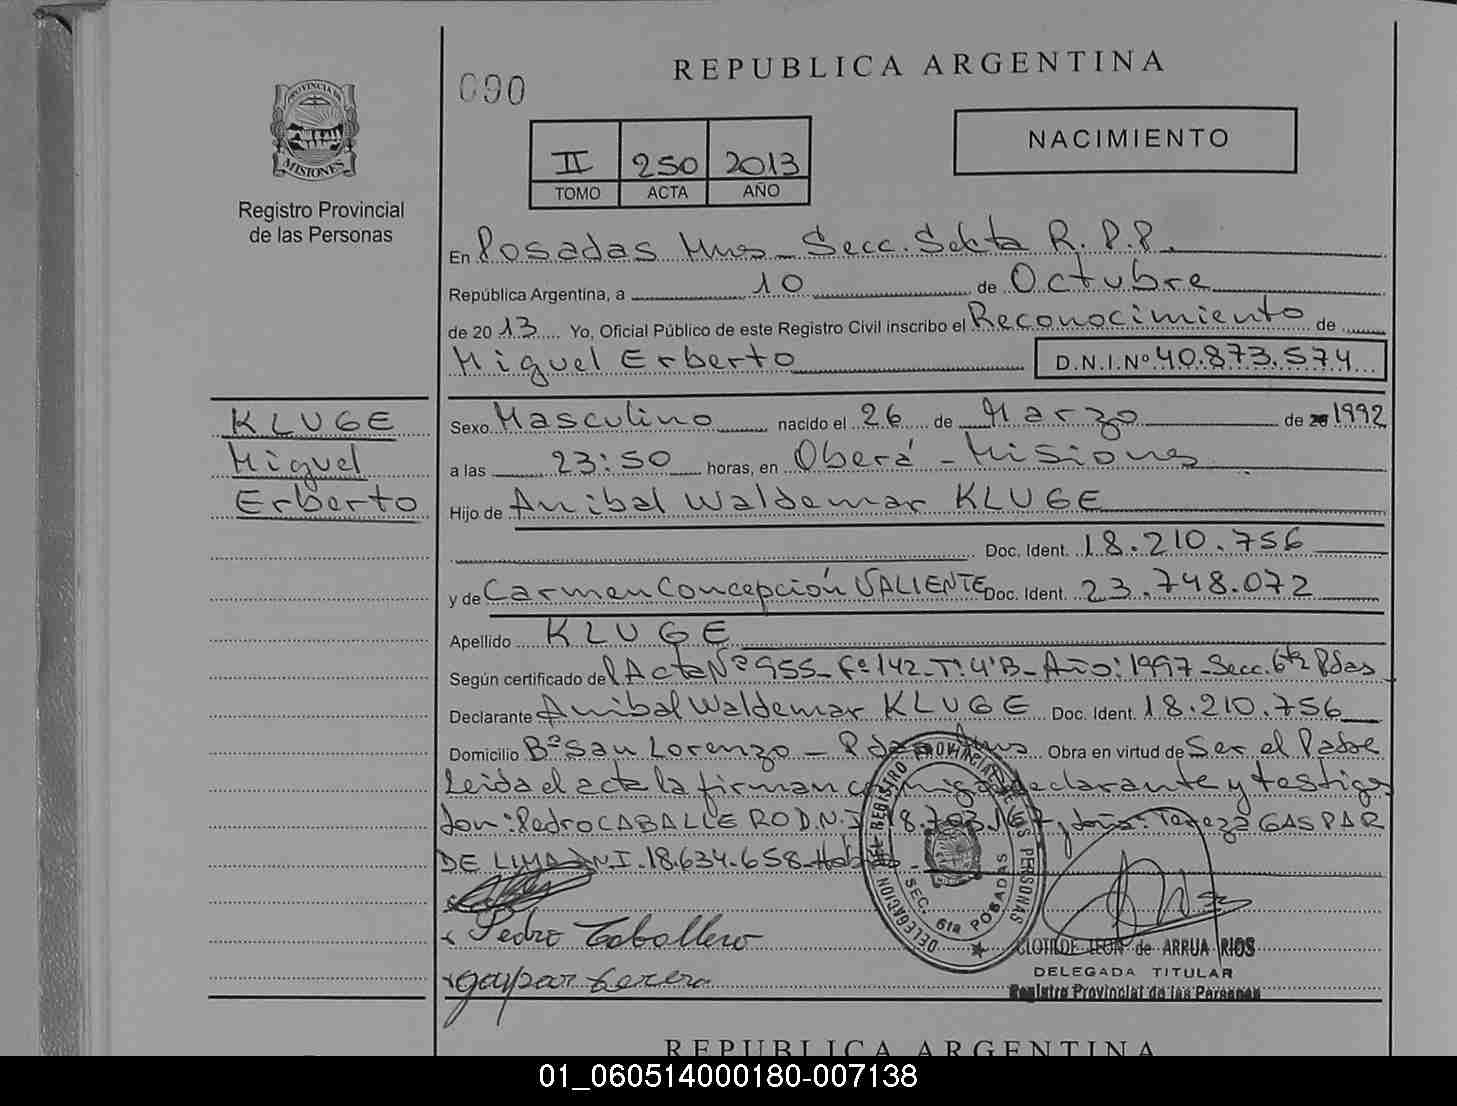 090
REPUBLICA ARGENTINA
NACIMIENTO
PROVINCIA DE
MISIONES
Registro Provincial
de las Personas
II 250 2013
TOMO ACTA AÑO
En Posadas Mnes Secc. Sexta R.P.P.
República Argentina, a 10 de Octubre
de 2013 Yo, Oficial Público de este Registro Civil inscribo el Reconocimiento de
Miguel Erberto D.N.I.Nº 40.873.574
KLUGE
Miguel
Erberto
Sexo Masculino nacido el 26 de Marzo de 1992
a las 23:50 horas, en Oberá - Misiones
Hijo de Anibal Waldemar KLUGE
Doc. Ident. 18.210.756
y de Carmen Concepción VALIENTE Doc. Ident. 23.748.072
Apellido KLUGE
Según certificado del Acta Nº 955- Fº 142-Tº 4ºB- Año: 1997-Secc. 6ta Pdas
Declarante Anibal Waldemar KLUGE Doc. Ident. 18.210.756
Domicilio Bº San Lorenzo - Pdas Mns Obra en virtud de Ser el Padre
Leida el acta la firman conmigo declarante y testigos
don: Pedro CABALLERO D.N.I 18.703.167 y doña: Tereza GASPAR
DE LIMA DNI. 18.634.658-
DELEGACION DEL REGISTRO PROVINCIAL DE LAS PERSONAS
SEC. 6ta POSADAS
Pedro Caballero
gaspar terera
CLOTILDE LEON de ARRUA RIOS
DELEGADA TITULAR
Registro Provincial de las Personas
REPUBLICA ARGENTINA
01_060514000180-007138